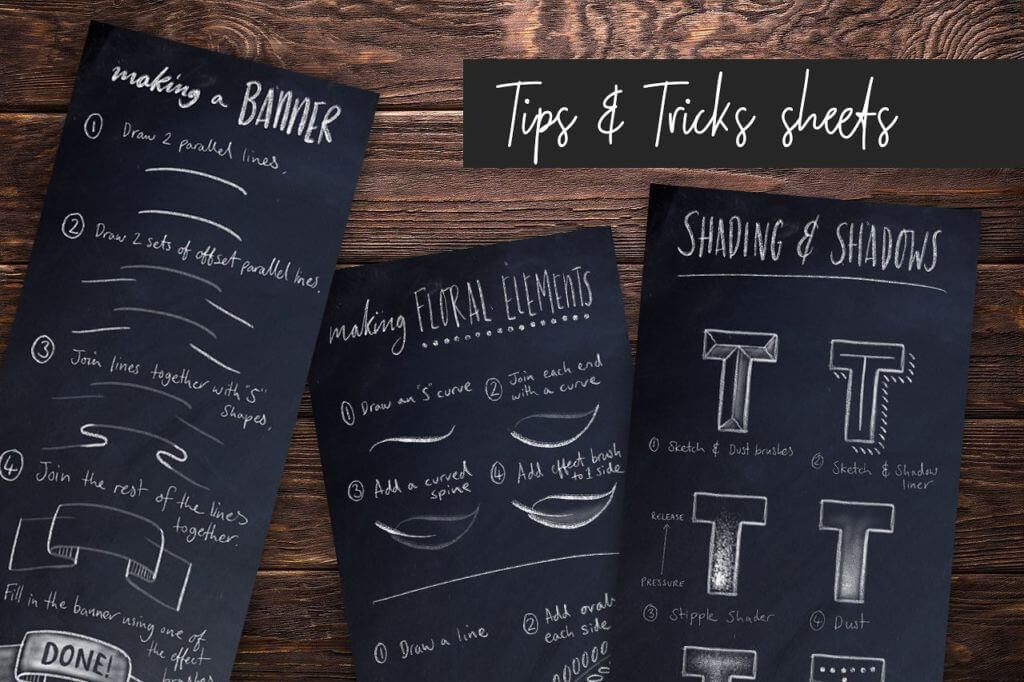 Tips & Tricks sheets
making a BANNER
① Draw 2 parallel lines.
② Draw 2 sets of offset parallel lines.
③ Join lines together with "S"
shapes.
④ Join the rest of the lines
together.
Fill in the banner using one of
the effect
brushes
DONE!
making FLORAL ELEMENTS
① Draw an "S" curve
② Join each end
with a curve
③ Add a curved
spine
④ Add effect brush
to 1 side
① Draw a line
② Add ovals
each side
SHADING & SHADOWS
T
T
① Sketch & Dust brushes
② Sketch & Shadow
liner
RELEASE
PRESSURE
T
T
③ Stipple Shader
④ Dust